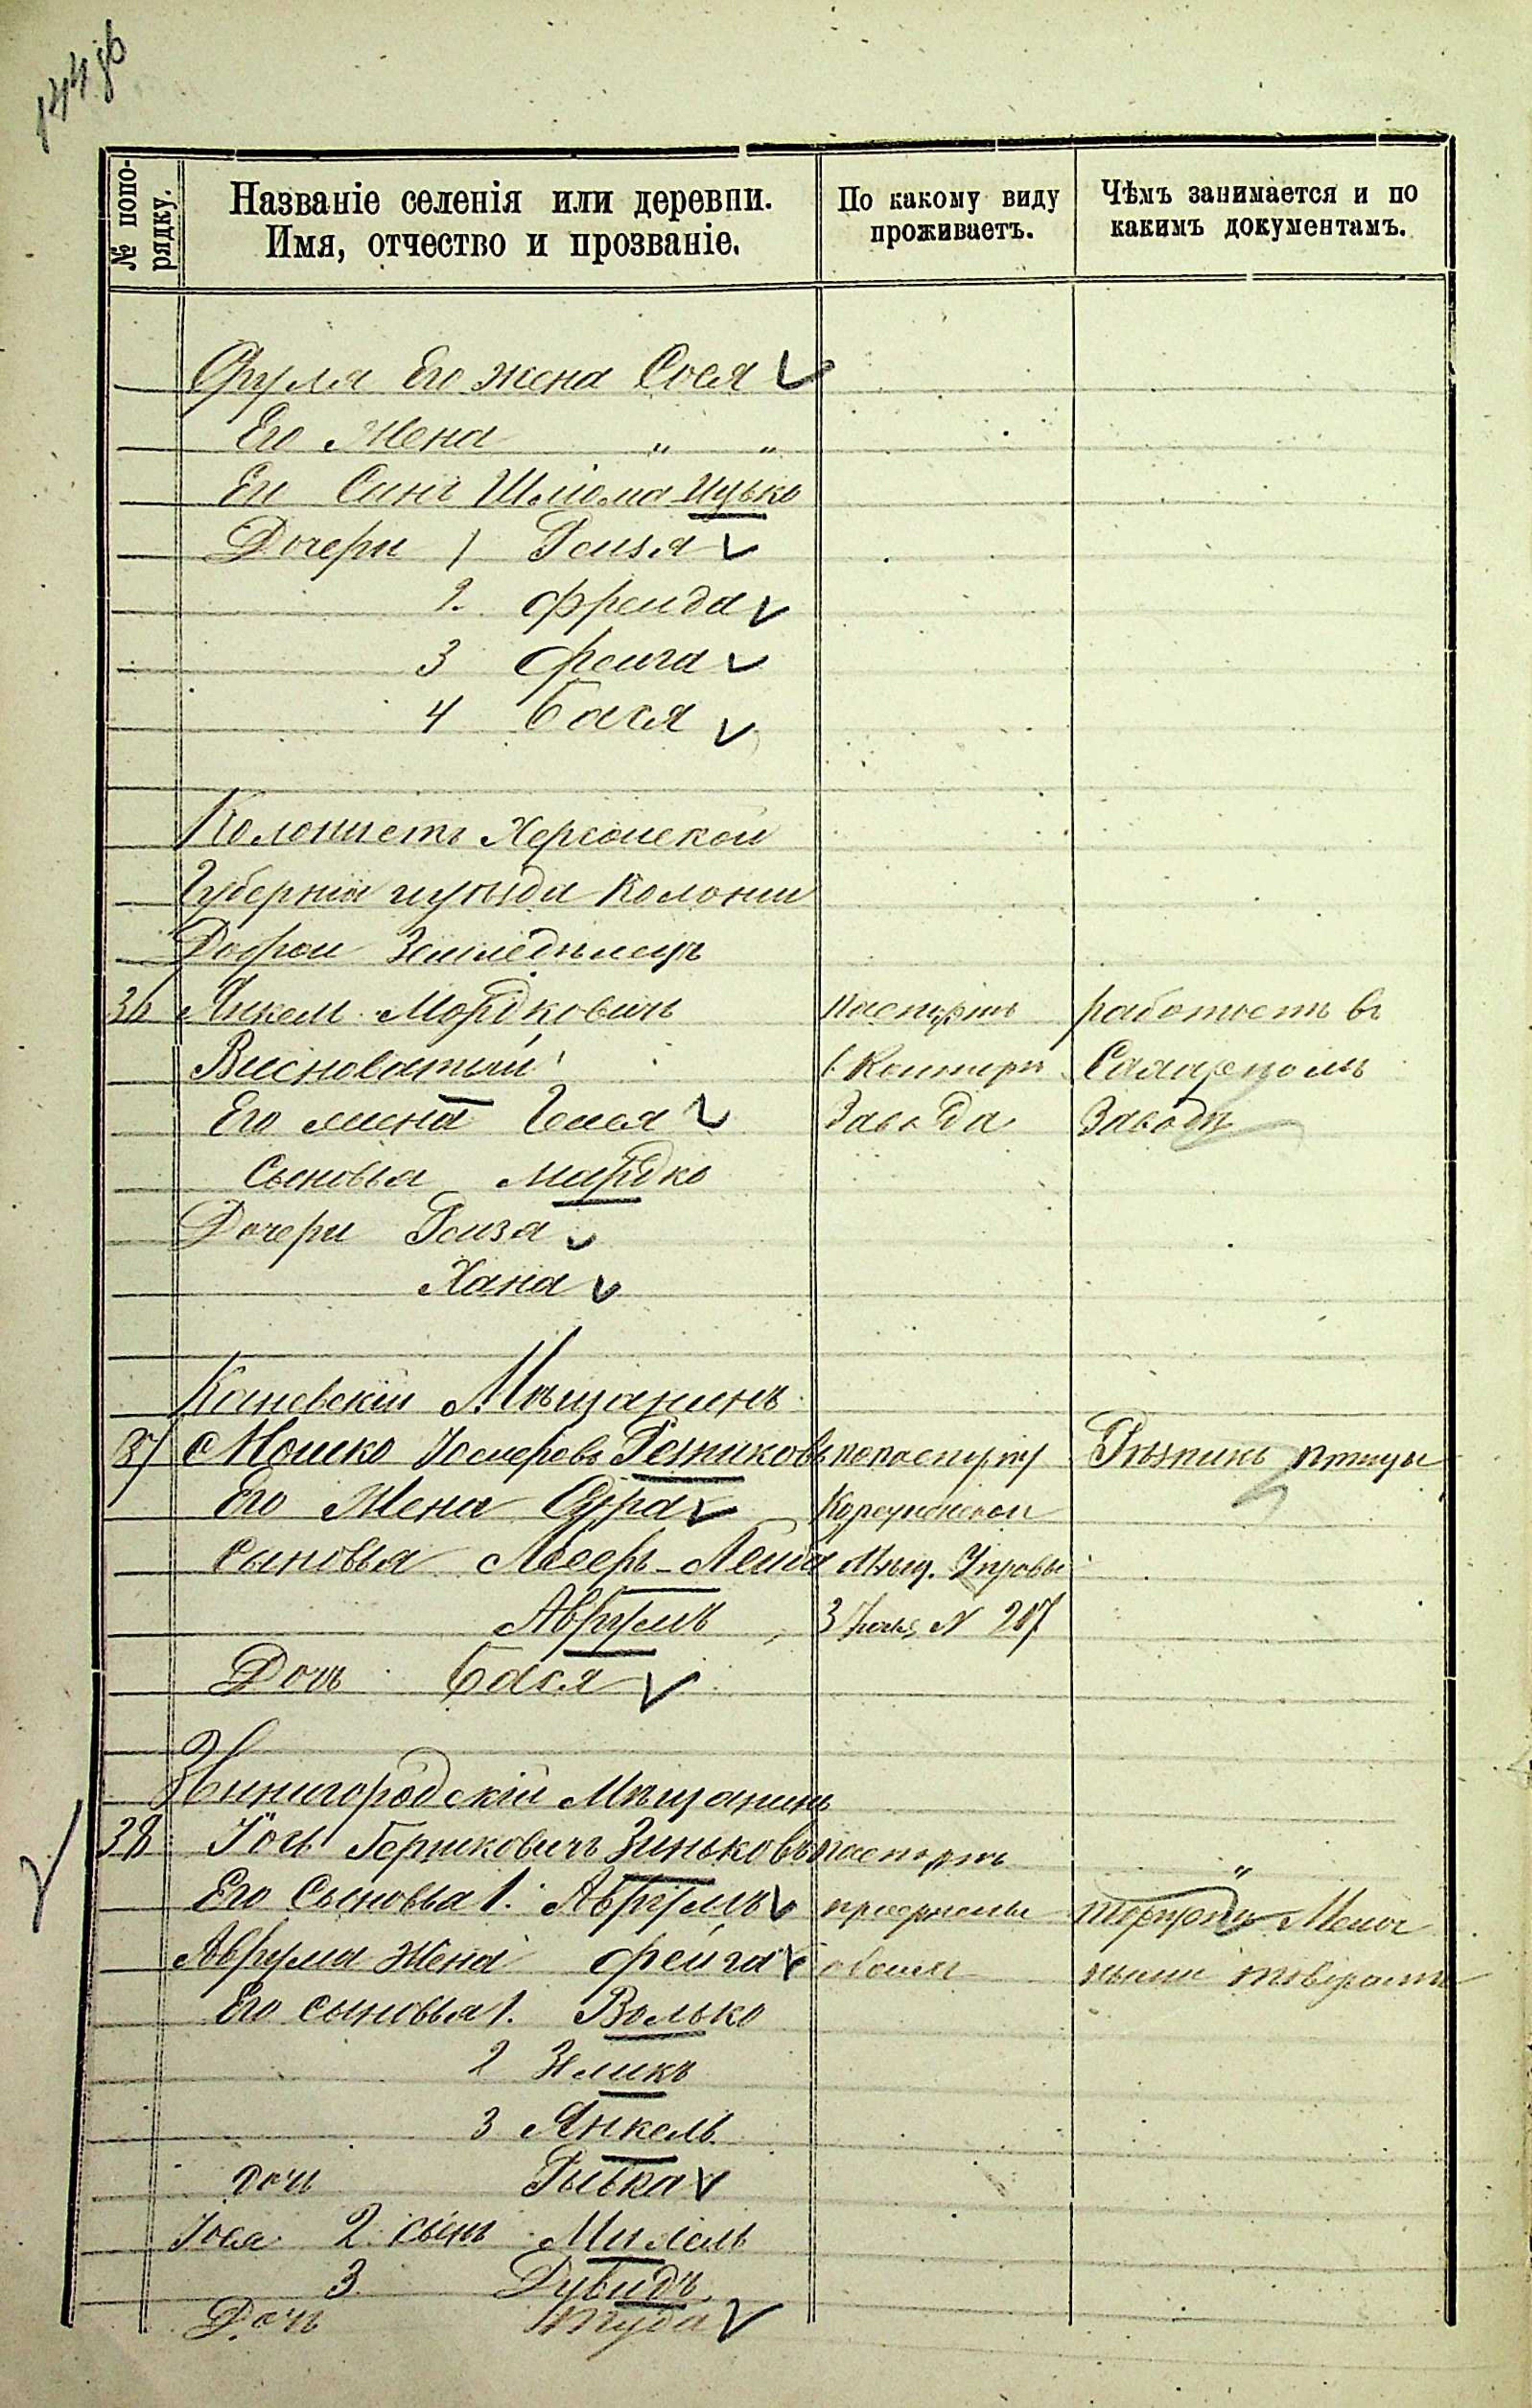 № попо-
рядку.
Названіе селенія или деревни.
Имя, отчество и прозваніе.
По какому виду
проживаетъ.
Чѣмъ занимается и по
какимъ документамъ.
Срумя Его жена Сося
Его Жена " "
Ег Синъ Шліома Ицько
Дочери 1 Реизя
2. Фреида
3 Феига
4 Бася
Колонистъ Херсонской
Губерніи уѣзда Колонии
Доброи Земледѣлецъ
36 Янкель Мордковичъ паспортъ работаетъ въ
Висноватый Контори Сахарномъ
Его жена Геися завода Заводѣ
Сыновья Мардко
Дочери Реиза
Хана
Каневскій Мѣщанинъ
37 Мошко Іосиеровъ Резниковъ попаспорту Рѣзникъ птицы
Его Жена Сура Корсунской
Сыновья Лесеръ-Леиба Мѣщ. Управы
Аврумъ 3 Іюня N 207
Дочь Бася
Звинигородскій Мѣщанинъ
38 Іось Гершковичъ Зиньковъ паспортъ "
Его Сыновья 1. Аврумъ Мелоч
Аврума Жена Фейга ными товарами
Его сыновья 1. Волько
2 Зеликъ
3 Янкель
дочь Рывка
Іося 2. сынъ
3. Дувидъ
Дочь